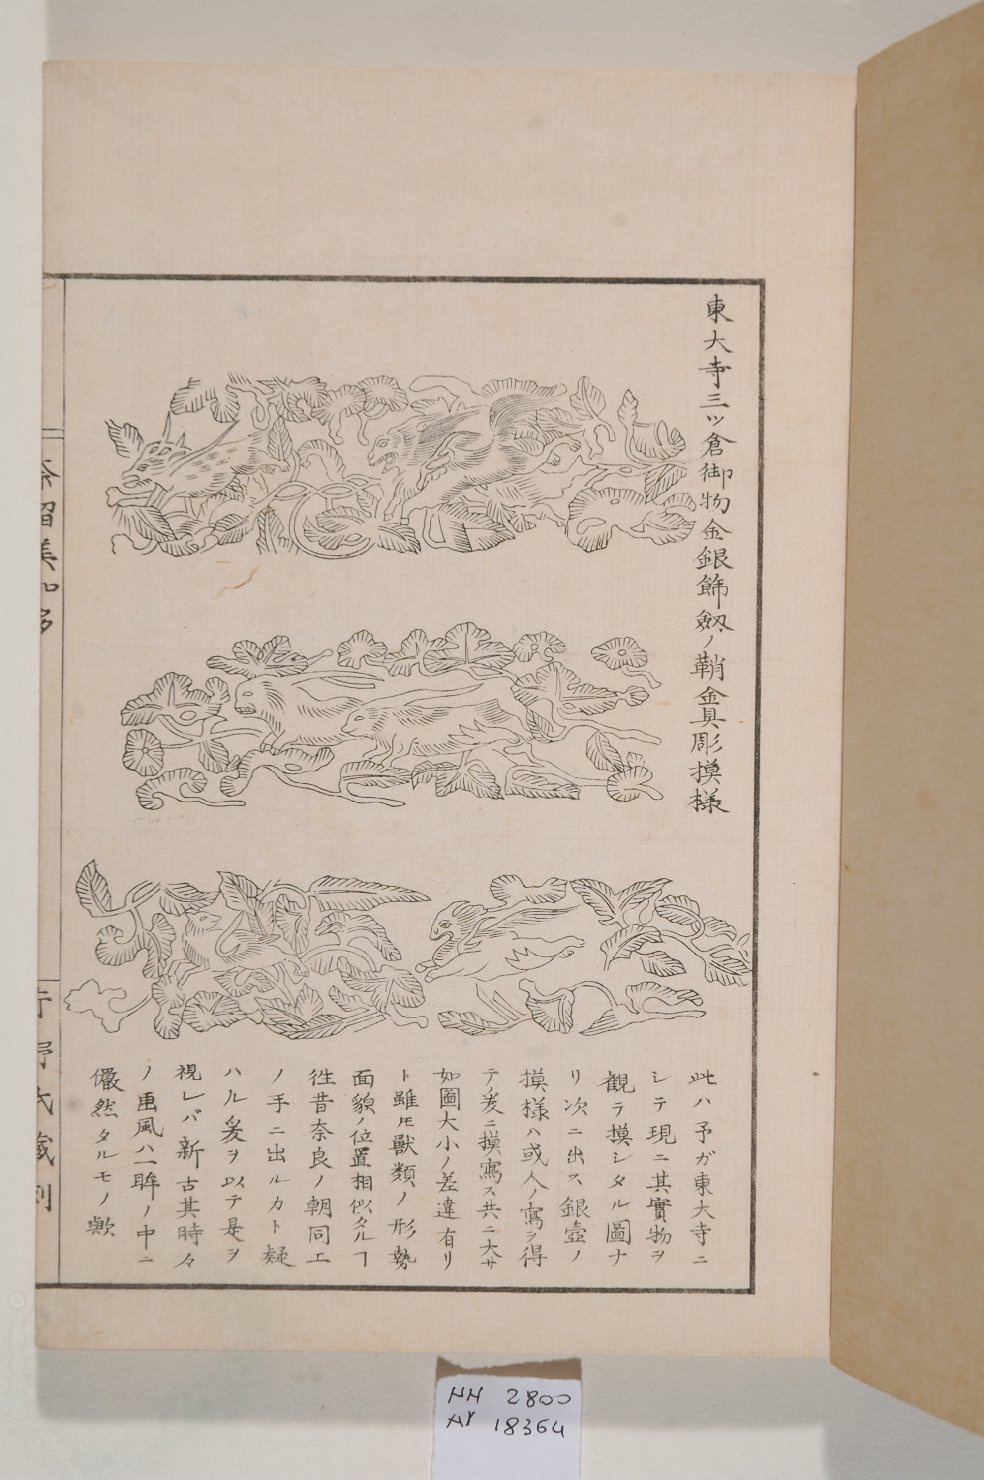 東大寺三ツ倉御物金銀飾劔ノ鞘金具彫摸様
此ハ予ガ東大寺ニ
シテ現ニ其實物ヲ
観テ摸シタル圖ナ
リ次ニ出ス銀壺ノ
摸様ハ或人ノ寫ヲ得
テ爰ニ摸寫ス共ニ大サ
如圖大小ノ差違有リ
ト雖𪜈獸類ノ形勢
面貌ノ位置相似タルヿ
徃昔奈良ノ朝同工
ノ手ニ出ルカト疑
ハル爰ヲ以テ是ヲ
視レバ新古其時々
ノ画風ハ一眸ノ中ニ
儼然タルモノ歟
留美加多
野氏蔵刻
HH 2800
AY 18364